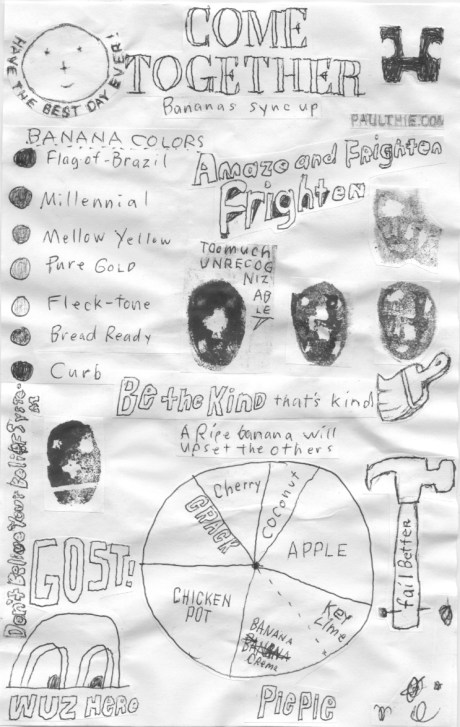 HAVE THE BEST DAY EVER!
COME
TOGETHER
Bananas sync up
PAULTHIE.COM
BANANA COLORS
Flag-of-Brazil
Millennial
Mellow Yellow
Pure GOLD
Fleck-tone
Bread Ready
Curb
Amaze and Frighten
Frighten
TOO much
UNRECOG
NIZ
AB
LE
Be the KIND that's kind
A Ripe banana will
upset the others
Don't Believe Your Belief Syste-
em
Cherry
Coconut
CRACK
APPLE
CHICKEN
POT
KEY
LIME
BANANA
BANANA
Creme
fail Better
GOST!
WUZ HERO
PIePIe